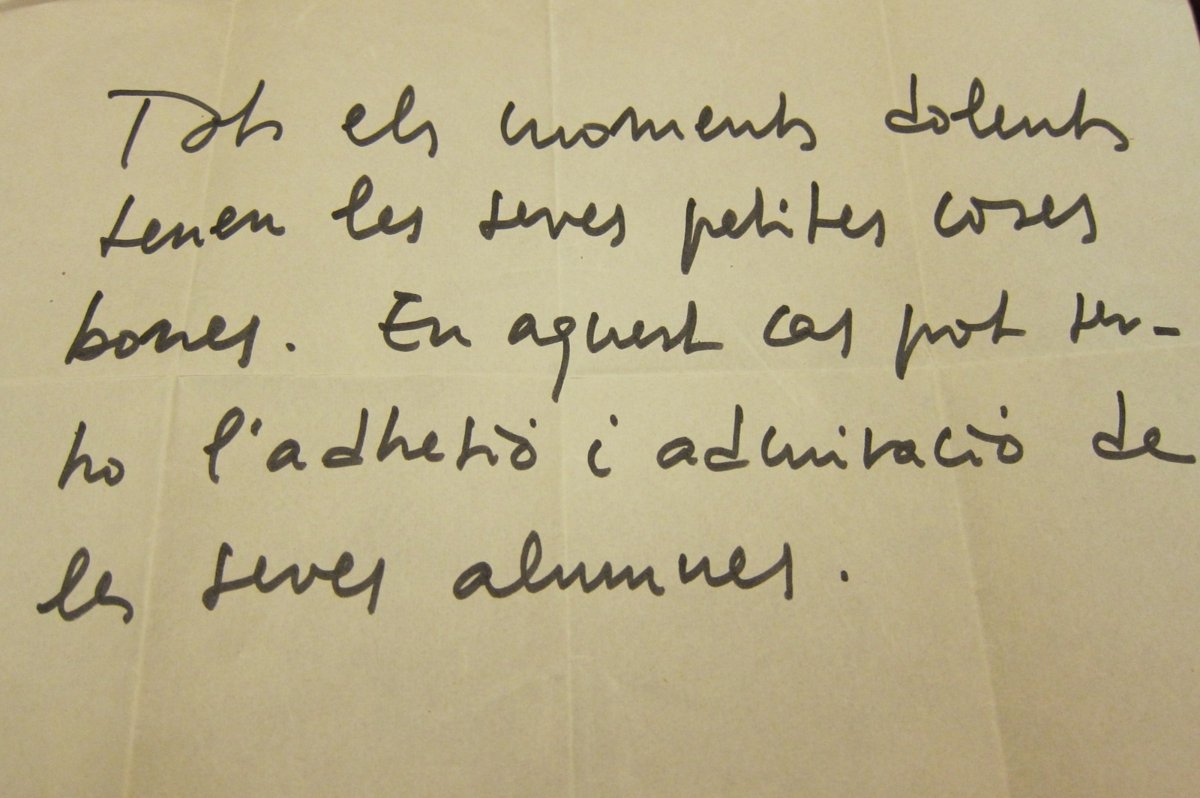 Tots els moments dolents
tenen les seves petites coses
bones. En aquest cas pot ser-
ho l'adhesió i admiració de
les seves alumnes.